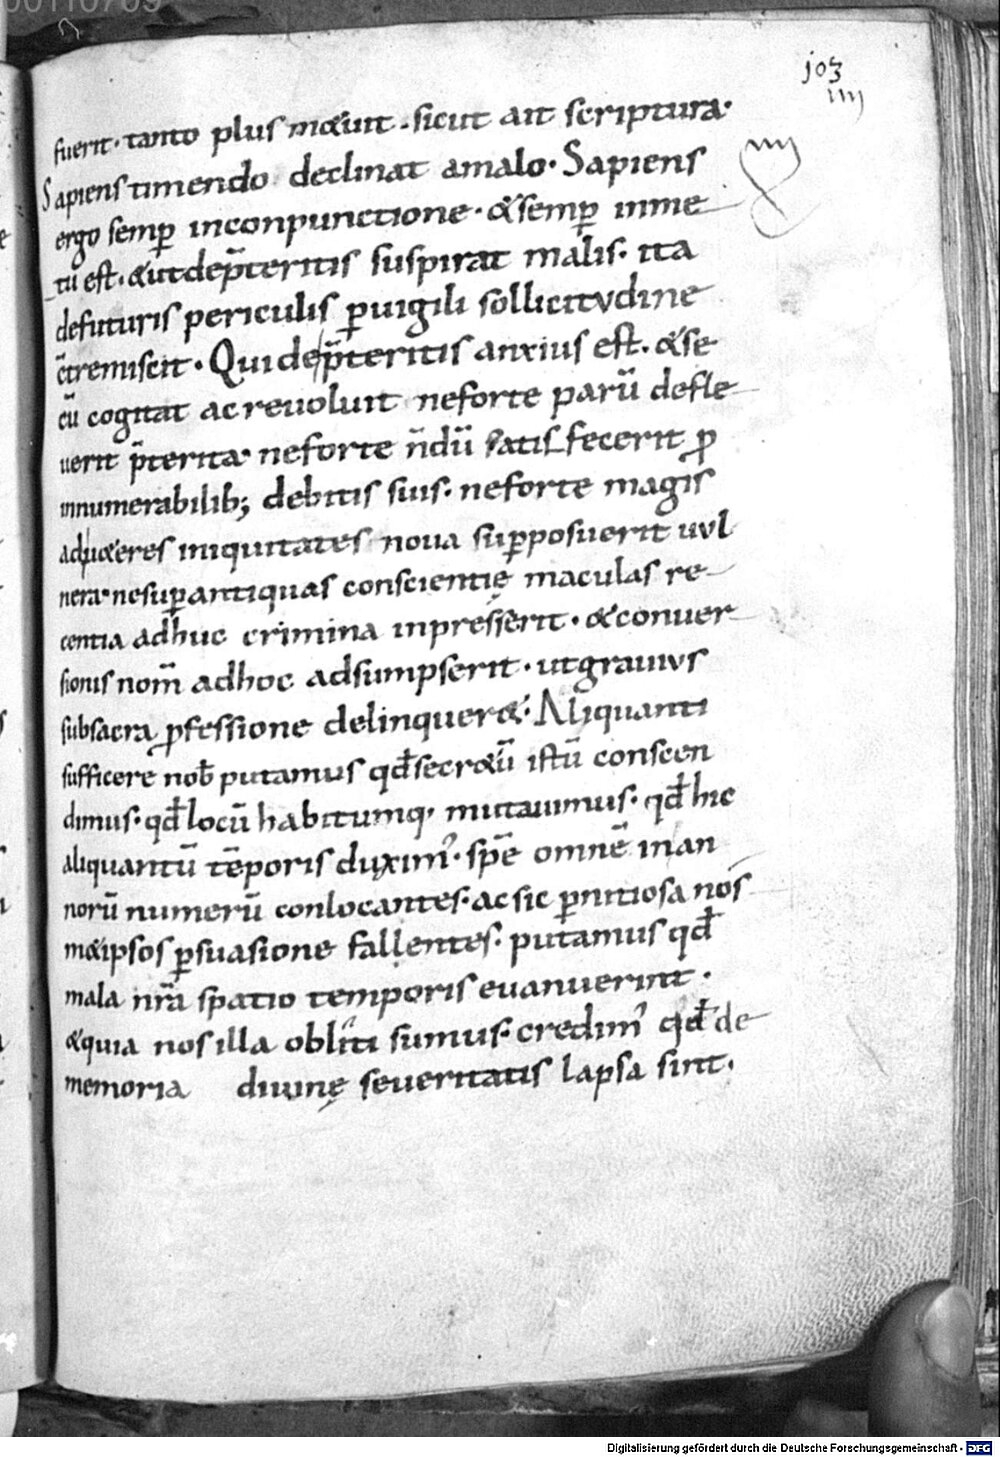 103
iiii
fuerit· tanto plus m&uit· sicut ait scriptura·
Sapiens timendo declinat amalo· Sapiens
ergo semp̲ inconpunctione· &semp̲ inme
tū est· &utdep̄teritis suspirat malis· ita
defuturis periculis p̲uigili sollicitudine
c̄tremiscit· Qui dep̄teritis anxius est· &se
cū cogitat ac reuoluit neforte parū defle
uerit p̄terita· neforte n̄dū satisfecerit ꝓ
innumerabilib; debitis suis· neforte magis
adu&eres iniquitates noua sup̲posuerit uul
nera· nesup̲antiquas conscientię maculas re
centia adhuc crimina inpresserit· &conuer
sionis nom̄ adhoc adsumpserit· utgrauius
subsacra ꝓfessione delinquer&· Aliquanti
sufficere nob̄ putamus qd̄ secr&ū istū conscen
dimus· qd̄ locū habitumq· mutauimus· qd̄ hic
aliquantū tēporis duxim᾿· spē omnē in an
norū numerū conlocantes· ac sic p̲nitiosa nos
m&ipsos p̲suasione fallentes· putamus qd̄
mala nr̄a spatio temporis euanuerint·
&quia nos illa obliti sumus· credim᾿ qd̄ de
memoria diuinę seueritatis lapsa sint·
Digitalisierung gefördert durch die Deutsche Forschungsgemeinschaft - DFG